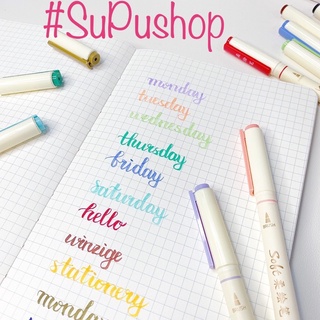 #SuPushop
monday
tuesday
wednesday
thursday
friday
saturday
hello
winzige
stationery
monday
Soft